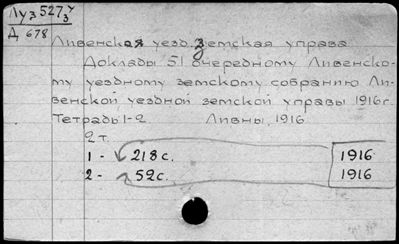 Луз 527 У/3
Д 678
Ливенская уезд. земская управа
Доклады 51 очередному Ливенско-
му уездному земскому собранию Ли-
венской уездной земской управы 1916 г.
Тетрадь 1-2 Ливны, 1916
2 т.
1 - 218 с. 1916
2 - 52 с. 1916